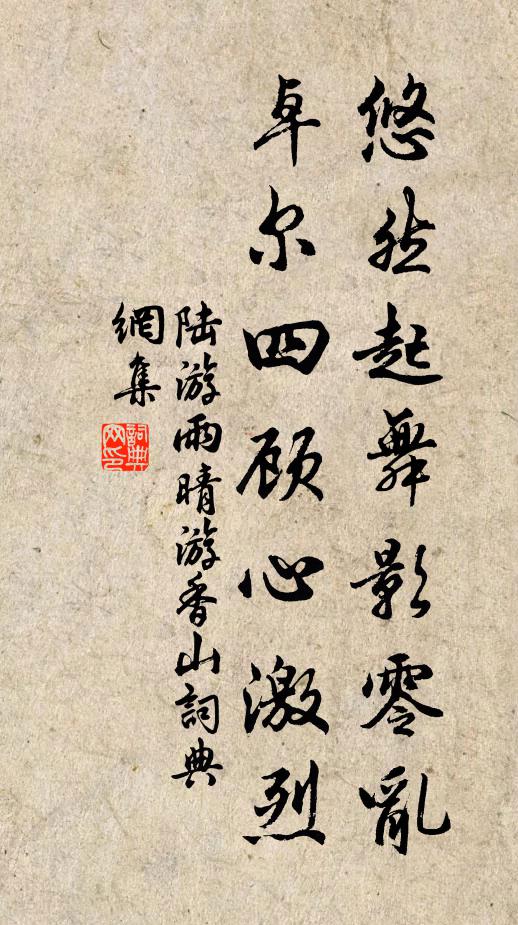 悠然起舞影零亂
卓尔四顾心激烈
陆游雨晴游香山詞典
網集
詞典
网印